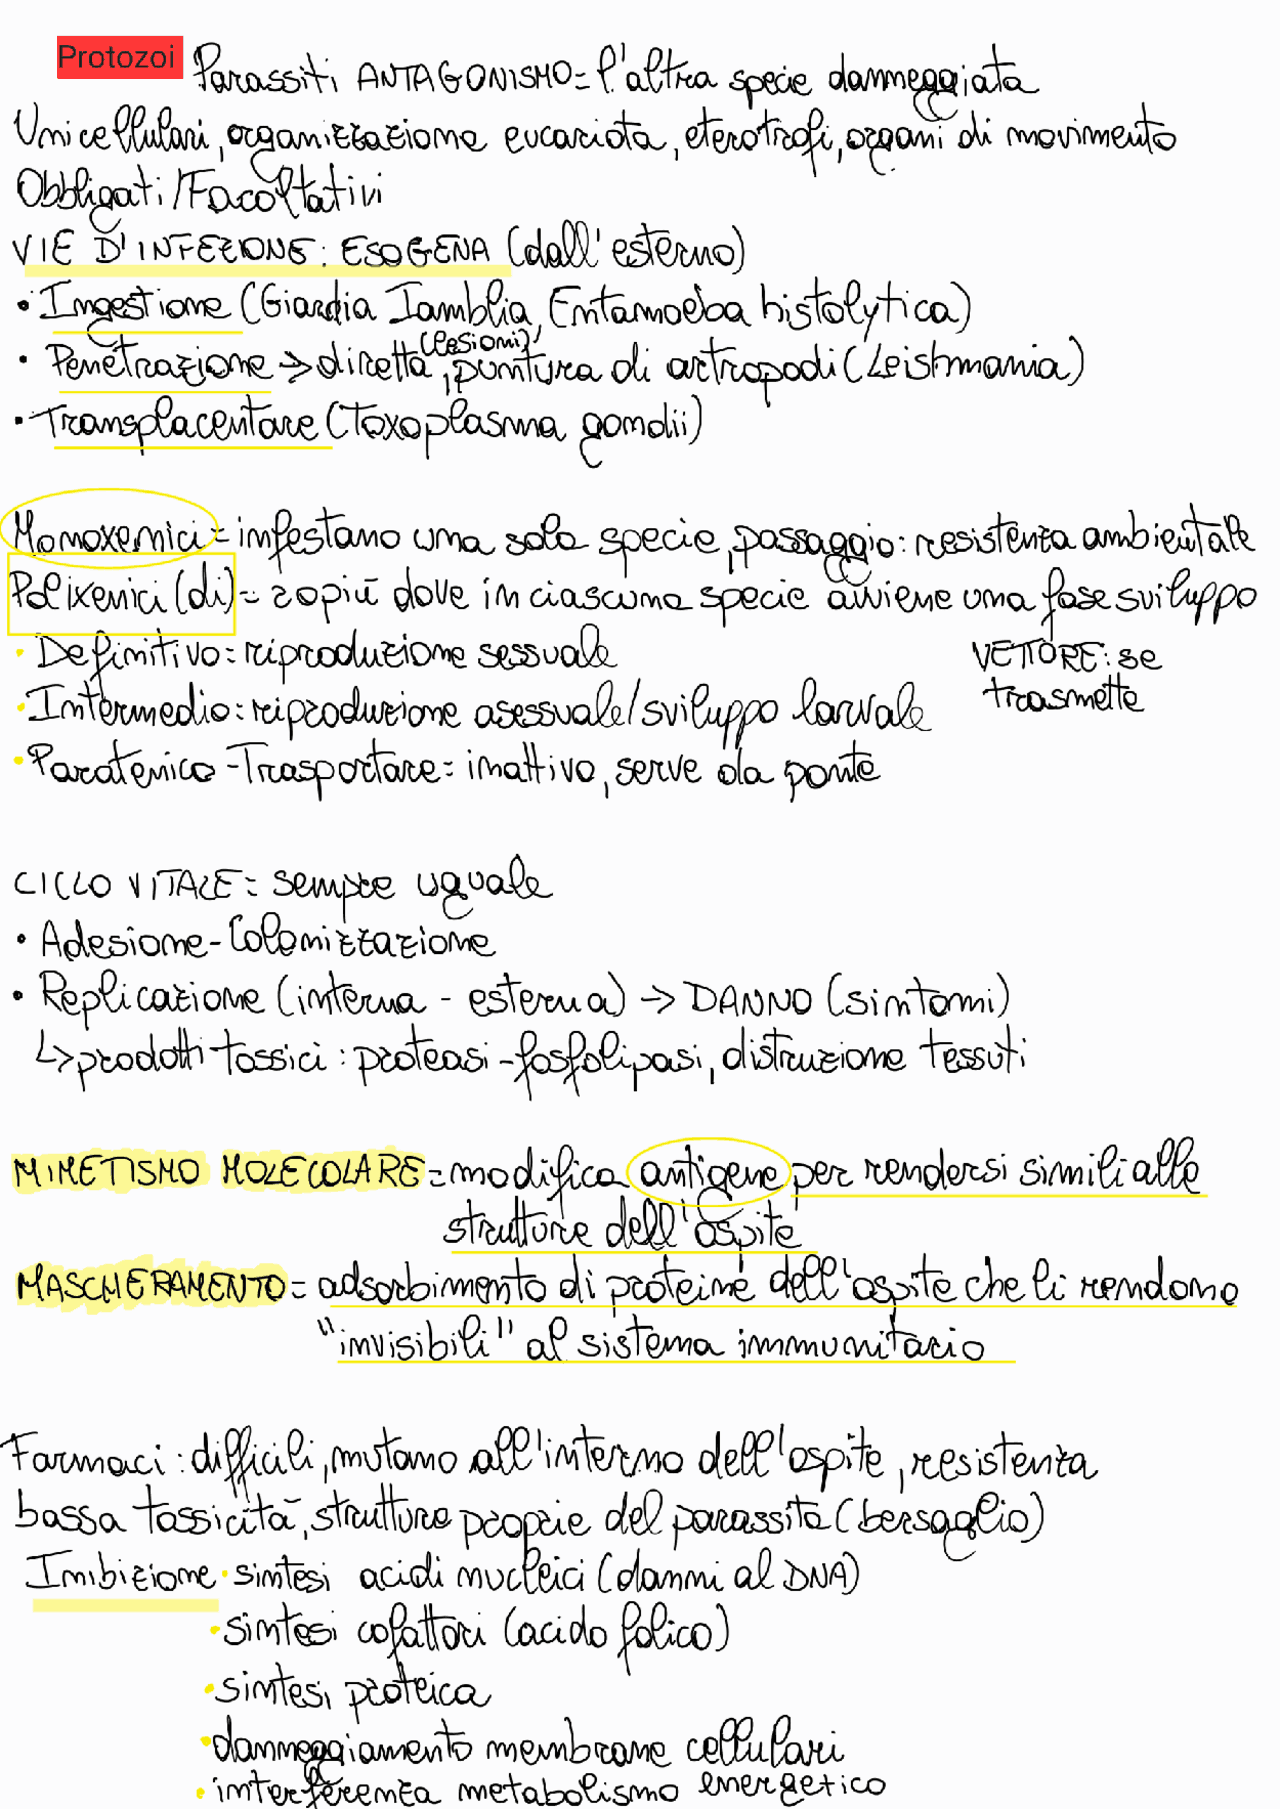 Protozoi Parassiti ANTAGONISMO= l'altra specie danneggiata
Unicellulari, organizzazione eucariota, eterotrofi, organi di movimento
Obbligati/Facoltativi
VIE D'INFEZIONE: ESOGENA (dall'esterno)
• Ingestione (Giardia Iamblia, Entamoeba histolytica)
(lesioni)
• Penetrazione → diretta, puntura di artropodi (Leishmania)
• Transplacentare (Toxoplasma gondii)
Monoxenici = infestano una sola specie, passaggio: resistenza ambientale
Polixenici (di) = 2 o più dove in ciascuna specie avviene una fase sviluppo
• Definitivo = riproduzione sessuale
VETTORE: se
• Intermedio: riproduzione asessuale/sviluppo larvale
trasmette
• Paratenico - Trasportare = inattivo, serve da ponte
CICLO VITALE = sempre uguale
• Adesione - Colonizzazione
• Replicazione (interna - esterna) → DANNO (sintomi)
↳ prodotti tossici: proteasi - fosfolipasi, distruzione tessuti
MIMETISMO MOLECOLARE = modifica antigene per rendersi simili alle
strutture dell'ospite
MASCHERAMENTO = adsorbimento di proteine dell'ospite che li rendono
"invisibili" al sistema immunitario
Farmaci: difficili, mutano all'interno dell'ospite, resistenza
bassa tossicità, strutture proprie del parassita (bersaglio)
Inibizione • sintesi acidi nucleici (danni al DNA)
• sintesi cofattori (acido folico)
• sintesi proteica
• danneggiamento membrane cellulari
• interferenza metabolismo energetico